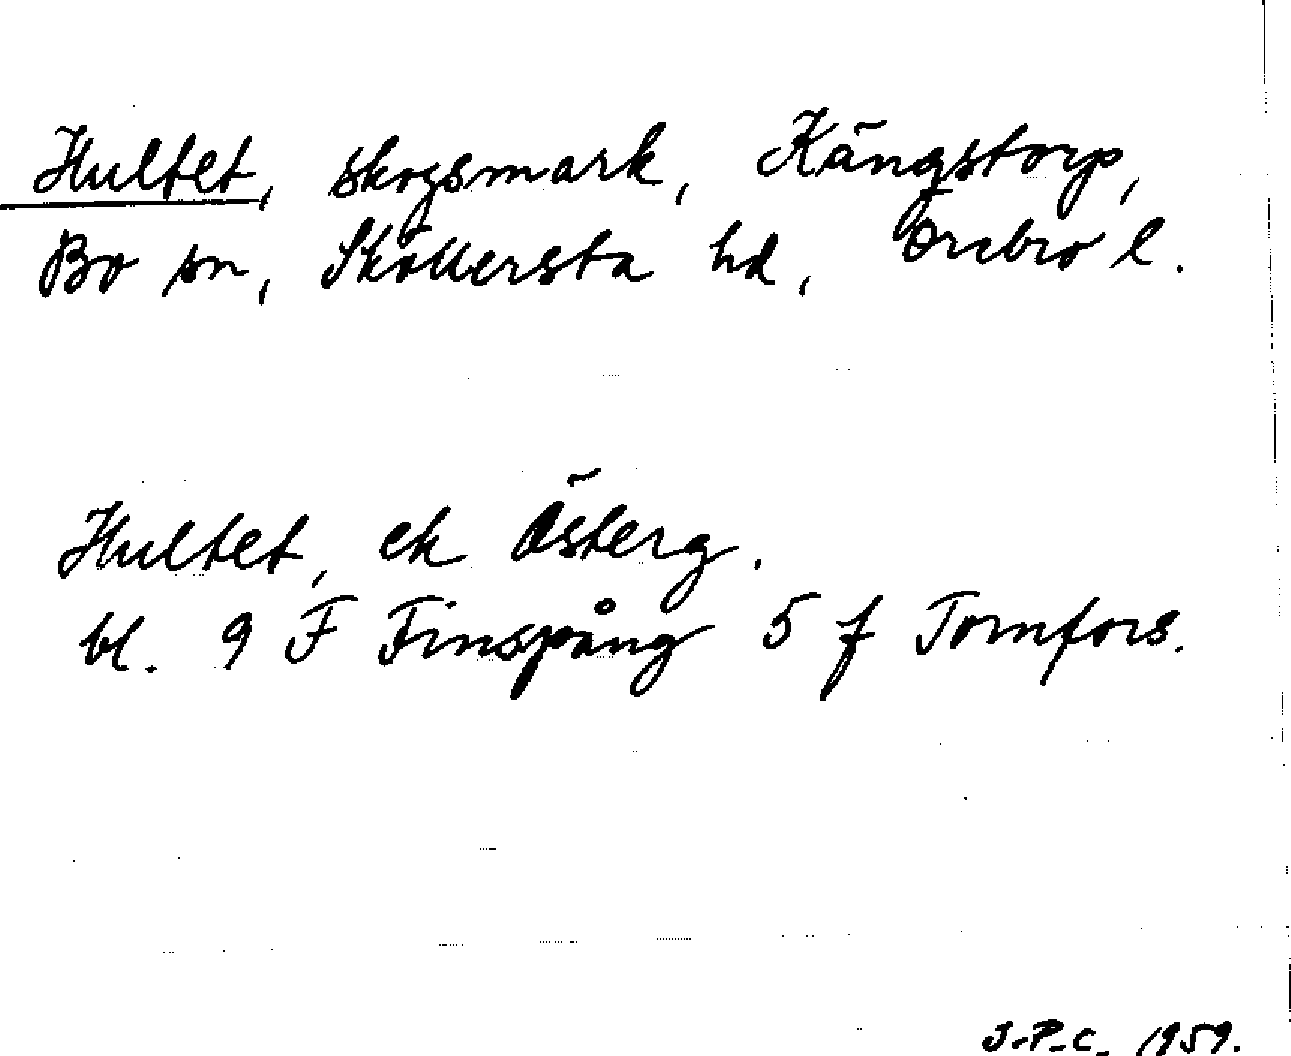 Hultet, skogsmark, Kängstorp,
Bo sn, Sköllersta hd, Örebro l.
Hultet, ek Österg.
bl. 9 F Finspång 5 f Tornfors.
J.-P.C. 1959.